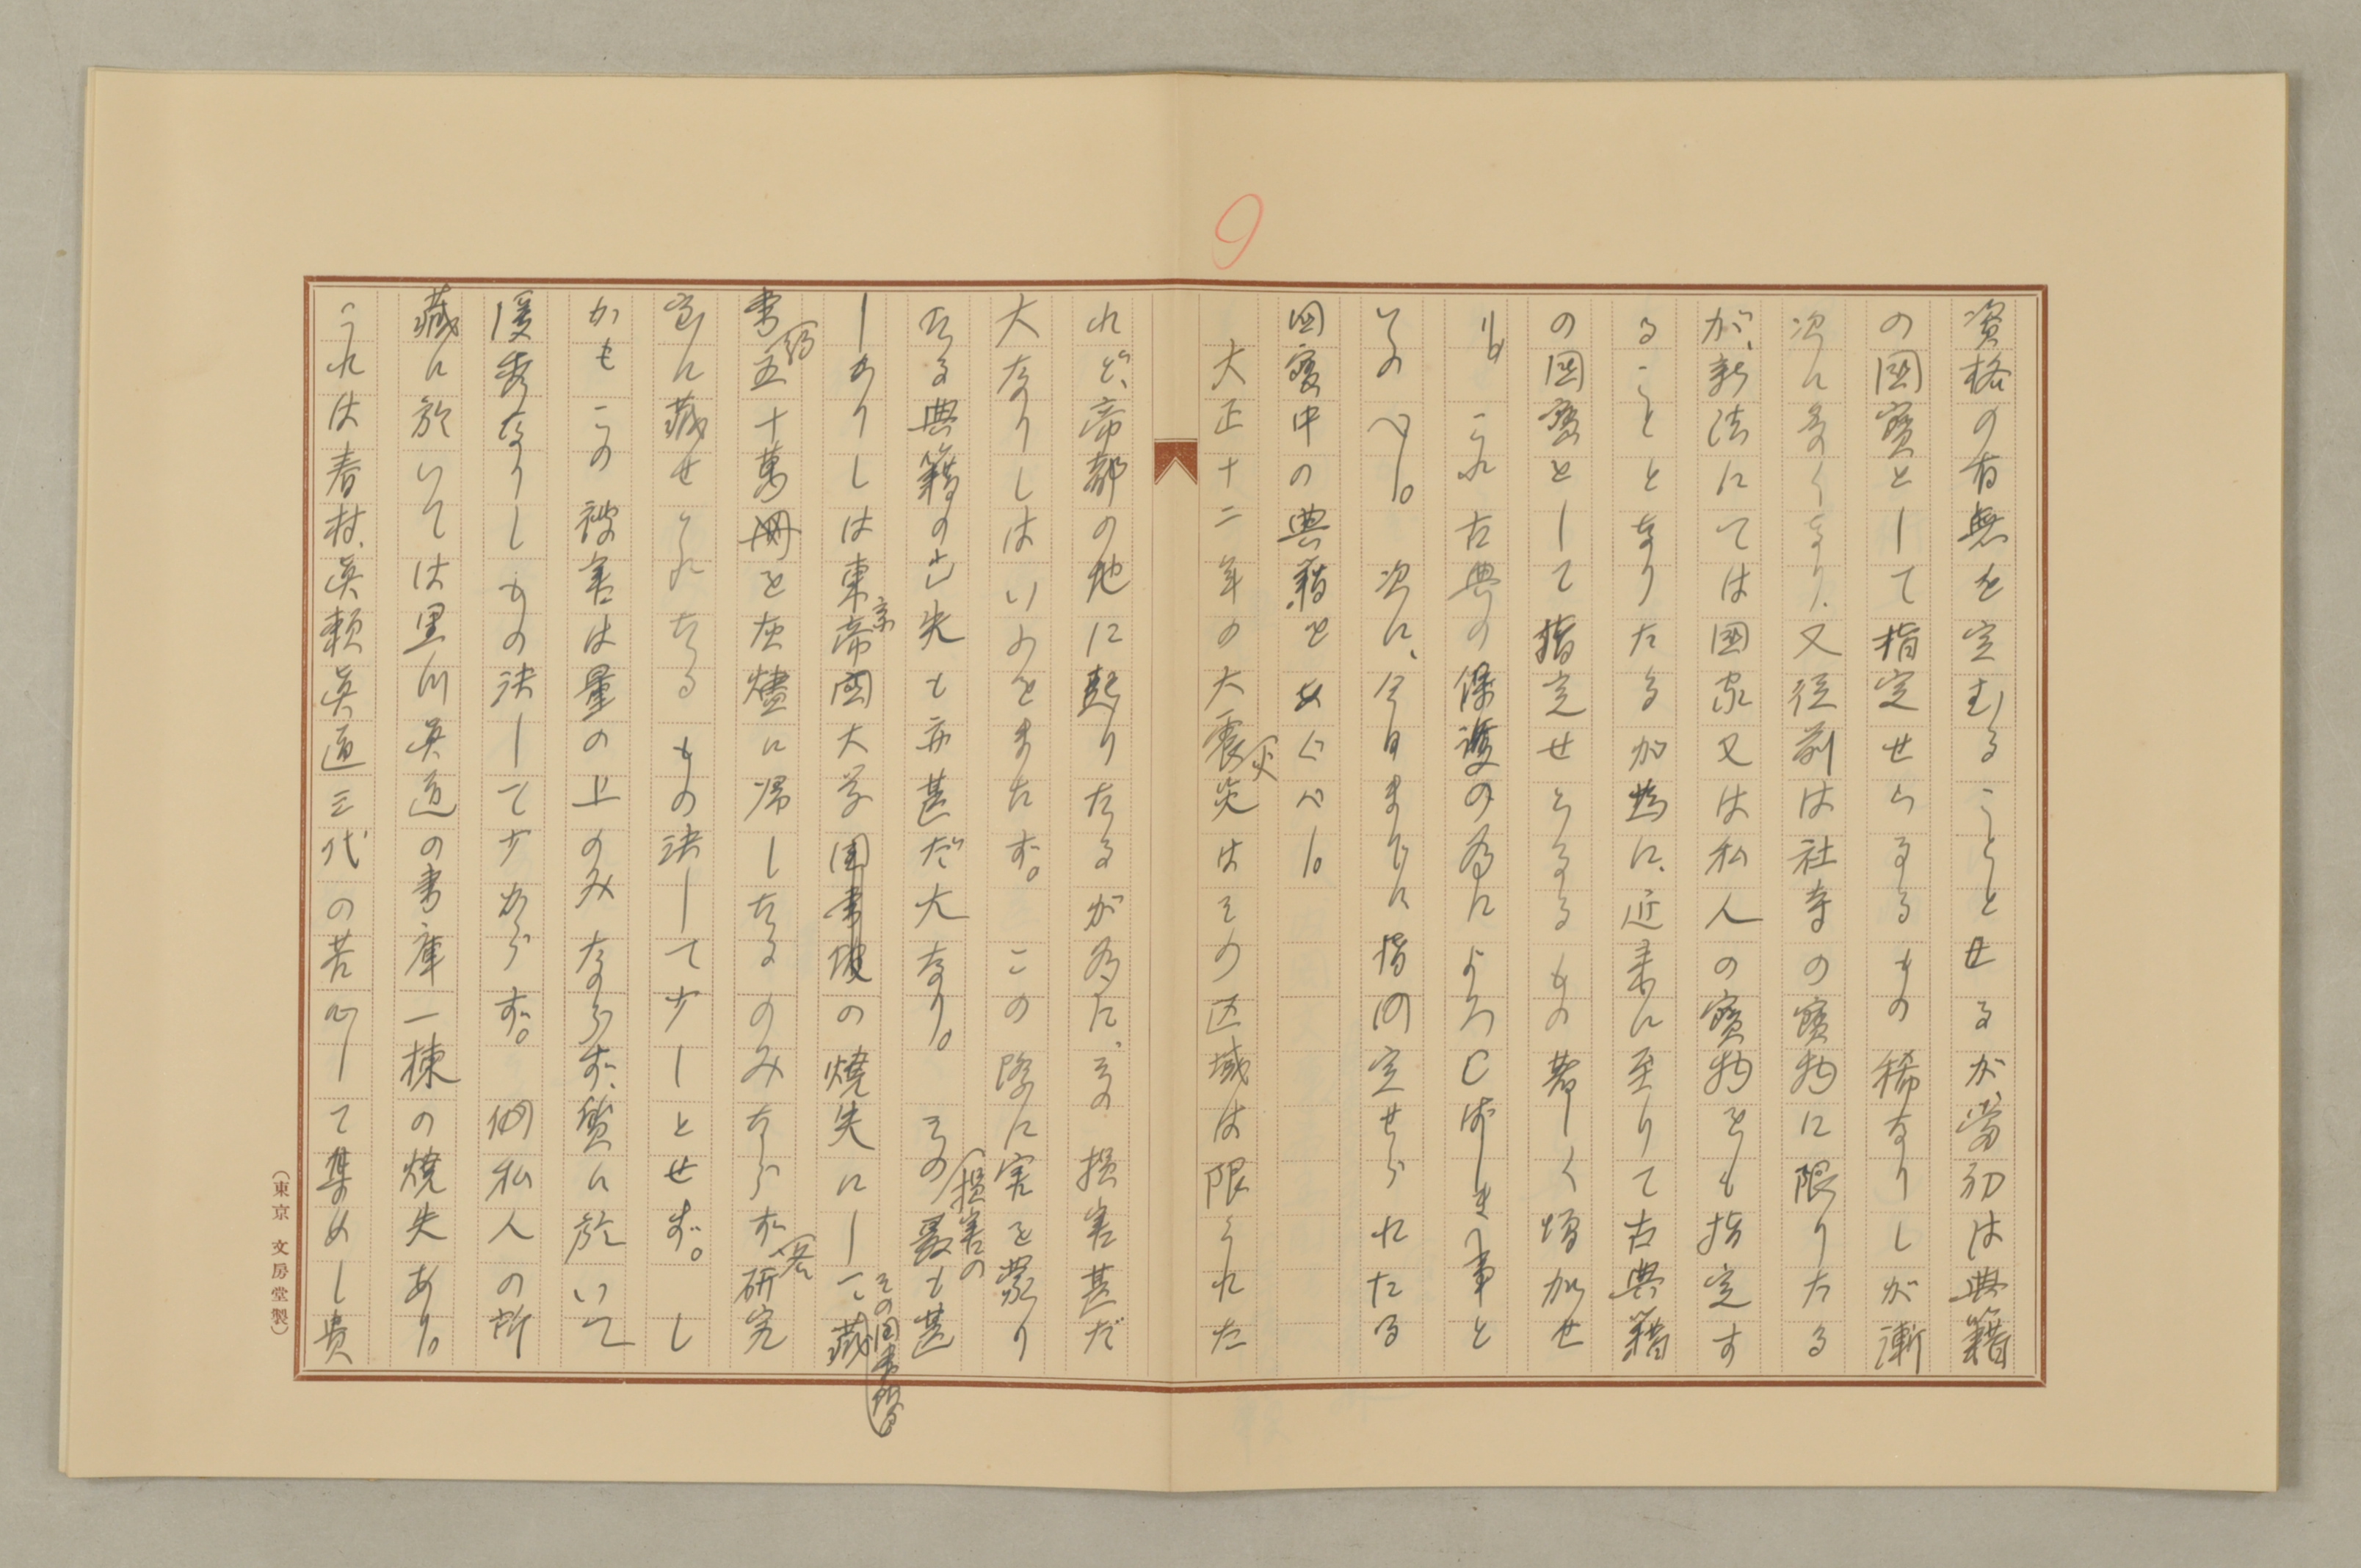 9
資格の有無を定むることとせるが、當初は典籍
の國寶として指定せらるるもの稀なりしが漸
次に多くなり、又従前は社寺の寶物に限りたる
が、新法にては國家又は私人の寶物をも指定す
ることとなりたるが爲に、近来に至りて古典籍
の國寶として指定せらるるもの著しく増加せ
り。これ古典の保護の為によろこばしき事と
いふべし。次に、今日までに指定せられたる
國寶中の典籍をあぐべし。
大正十二年の大震災はその区域は限られた
れど、帝都の地に起りたるが為に、その損害甚だ
大なりしはいふをまたず。この際に害を蒙り
たる典籍の亡失も亦甚だ大なり。その損害の最も甚
しかりしは東京帝國大学図書館の焼失にしてその図書館藏
書約五十萬冊を灰燼に帰したるのみならず各研究
室に藏せられたるもの決して少しとせず。し
かもこの被害は量の上のみならず、質に於いて
優秀なりしもの決して少からず。個私人の所
藏に於いては黒川真道の書庫一棟の焼失あり。
これは春村、真頼、真道三代の苦心して集めし貴
(東京 文房堂製)